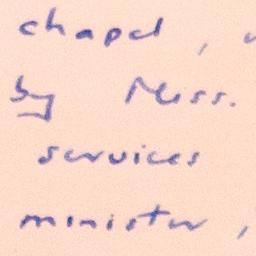 chapel,
by Miss.
services
minister,